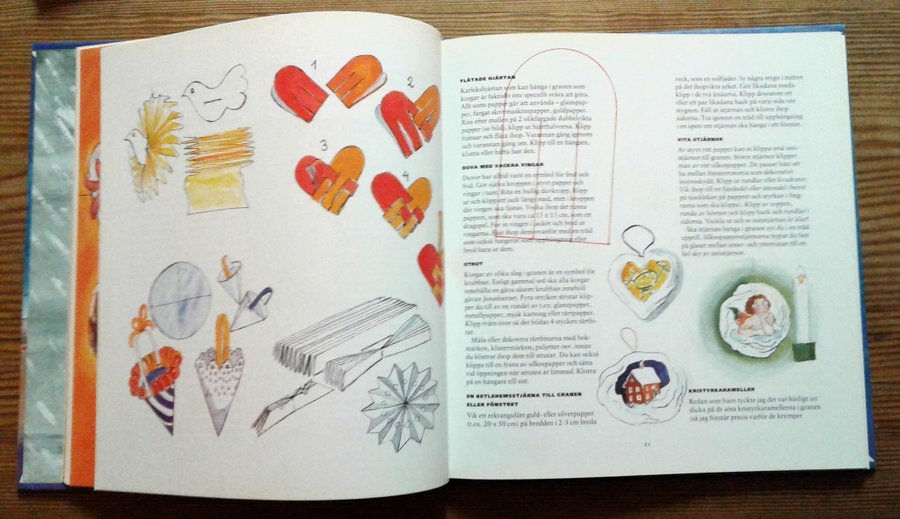 1
2
3
4
FLÄTADE HJÄRTAN
Kärlekshjärtan som kan hänga i granen som
korgar är faktiskt inte speciellt svåra att göra.
Allt som papper går att använda – glanspap-
per, färgat skrivmaskinspapper, guldpapper.
Rita efter mallen på 2 olikfärgade dubbelvikta
papper (se bild), klipp ut hjärthalvorna. Klipp
fransar och fläta ihop. Varannan gång ovanom
och varannan gång om. Klipp till en hängare,
klistra eller häfta fast den.
DUVA MED VACKRA VINGAR
Duvor har alltid varit en symbol för fred och
frid. Gör själva kroppen i styvt papper och
vingar i tunt. Rita en bullig duvkropp, klipp
ut och klipp ett jack längs med, mitt i kroppen
där vingen ska fästas. Vecka ihop det tunna
pappret, som ska vara ca 15 x 15 cm, som ett
dragspel. För in vingen i jacket och bred ut
vingarna. Fäst ihop dem ovanför med en tråd
som också fungerar som upphängning eller
bred bara ut dem.
STRUT
Korgar av olika slag i granen är en symbol för
krubban. Enligt gammal sed ska alla korgar
innehålla en gåva såsom krubban innehöll
gåvan Jesusbarnet. Fyra stycken strutar klip-
per du till av en rundel av t.ex. glanspapper,
metallpapper, mjuk kartong eller tårtpapper.
Klipp tvärs över så det bildas 4 stycken tårtbi-
tar.
Måla eller dekorera tårtbitarna med bok-
märken, klistermärken, paljetter osv. innan
du klistrar ihop dem till strutar. Du kan också
klippa till en frans av silkespapper och sätta
vid öppningen när struten är limmad. Klistra
på en hängare till sist.
EN BETLEHEMSSTJÄRNA TILL GRANEN
ELLER FÖNSTRET
Vik ett rektangulärt guld- eller silverpapper
(t.ex. 20 x 50 cm) på bredden i 2-3 cm breda
veck, som en solfjäder. Sy några stygn i mitten
på det ihopvikta arket. Gör likadana sneda
klipp i de två ändarna. Klipp dessutom ett
eller ett par likadana hack på varje sida om
stygnen. Fäll ut stjärnan och klistra ihop
sidorna. Trä igenom en tråd till upphängning
i en spets om stjärnan ska hänga i ett fönster.
VITA STJÄRNOR
Av styvt vitt papper kan ni klippa små snö-
stjärnor till granen. Större stjärnor klipper
man av vitt silkespapper. De passar bäst att
ha mellan fönsterrutorna som dekorativt
insynsskydd. Klipp ut rundlar eller kvadrater.
Vik ihop till en fjärdedel eller åttondel (beror
på tjockleken på pappret och styrkan i fing-
rarna som ska klippa). Klipp av toppen,
runda av hörnen och klipp hack och rundlar i
sidorna. Veckla ut och se snöstjärnan är klar!
Ska stjärnan hänga i granen syr du i en tråd
upptill. Silkespappersstjärnorna tejpar du fast
på glaset mellan inner- och ytterrutan till en
hel sky av snöstjärnor.
KRISTYRKARAMELLER
Redan som barn tyckte jag det var härligt att
slicka på de söta kristyrkaramellerna i granen
så jag förstår precis varför de krymper
21